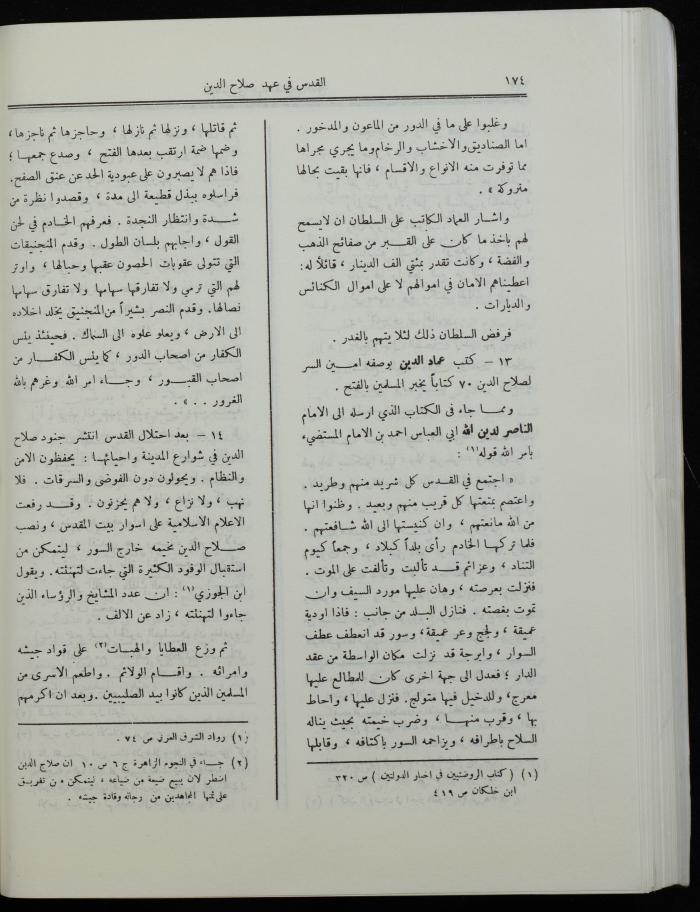 ١٧٤
القدس في عهد صلاح الدين
وغلبوا على ما في الدور من الماعون والمدخور .
اما الصناديق والاخشاب والرخام وما يجري مجراها
مما توفرت منه الانواع والاقسام ، فانها بقيت بحالها
متروكة » .
واشار العماد الكاتب على السلطان ان لايسمح
لهم باخذ ما كان على القبر من صفائح الذهب
والفضة ، وكانت تقدر بمئتي الف الدينار ، قائلاً له :
اعطيناهم الامان في اموالهم لا على اموال الكنائس
والديارات .
فرفض السلطان ذلك لئلا يتهم بالغدر .
١٣ – كتب عماد الدين بوصفه امين السر
لصلاح الدين ٧٠ كتاباً يخبر المسلمين بالفتح .
ومما جاء في الكتاب الذي ارسله الى الامام
الناصر لدين الله ابي العباس احمد بن الامام المستضيء
بامر الله قوله(١) :
« اجتمع في القدس كل شريد منهم وطريد .
واعتصم بمنعتها كل قريب منهم وبعيد . وظنوا انها
من الله مانعتهم ، وان كنيستها الى الله شافعتهم .
فلما تركها الخادم رأى بلداً كبلاد ، وجمعاً كيوم
التناد ، وعزائم قد تألبت وتألفت على الموت .
فنزلت بعرصته ، وهان عليها مورد السيف وان
تموت بغصته . فنازل البلد من جانب : فاذا اودية
عميقة ، ولجج وعر عميقة ، وسور قد انعطف عطف
السوار ، وابرجة قد نزلت مكان الواسطة من عقد
الدار ؛ فعدل الى جهة اخرى كان للمطالع عليها
معرج، وللدخيل فيها متولج. فنزل عليها ، واحاط
بها ، وقرب منها ، وضرب خيمته بحيث يناله
السلاح باطرافه ، ويزاحمه السور باكتافه ، وقابلها
(١) ( كتاب الروضتين في اخبار الدولتين ) ص ٣٢٠
ابن خلكان ص ٤١٩
ثم قاتلها ، ونزلها ثم نازلها ، وحاجزها ثم ناجزها ،
وضمها ضمة ارتقب بعدها الفتح ، وصدع جمعها ؛
فاذا هم لا يصبرون على عبودية الحد عن عنق الصفح.
فراسلوه ببذل قطيعة الى مدة ، وقصدوا نظرة من
شدة وانتظار النجدة . فعرفهم الخادم في لحن
القول ، واجابهم بلسان الطول . وقدم المنجنيقات
التي تتولى عقوبات الحصون عقبها وحبالها ، واوتر
لهم التي ترمي ولا تفارقها سهامها ولا تفارق سهامها
نصالها. وقدم النصر بشيراً من المنجنيق يخلد اخلاده
الى الارض ، ويعلو علوه الى السماك . فحينئذ يئس
الكفار من اصحاب الدور ، كما يئس الكفار من
اصحاب القبور ، وجاء امر الله وغرهم بالله
الغرور . . » .
١٤ – بعد احتلال القدس انتشر جنود صلاح
الدين في شوارع المدينة واحيائها : يحفظون الامن
والنظام . ويحولون دون الفوضى والسرقات . فلا
نهب ، ولا نزاع ، ولا هم يحزنون . وقد رفعت
الاعلام الاسلامية على اسوار بيت المقدس ، ونصب
صلاح الدين مخيمه خارج السور ، ليتمكن من
استقبال الوفود الكثيرة التي جاءت لتهنئته. ويقول
ابن الجوزي(١) : ان عدد المشايخ والرؤساء الذين
جاءوا لتهنئته ، زاد عن الالف .
ثم وزع العطايا والهبات(٢) على قواد جيشه
وامرائه . واقام الولائم . واطعم الاسرى من
المسلمين الذين كانوا بيد الصليبيين . وبعد ان اكرمهم
(١) رواد الشرق العربي ص ٧٤ .
(٢) جاء في النجوم الزاهرة ج ٦ ص ١٠ ان صلاح الدين
اضطر لان يبيع ضيعة من ضياعه ، ليتمكن من تفريق
على ثمنها المجاهدين من رجاله وقادة جيشه .